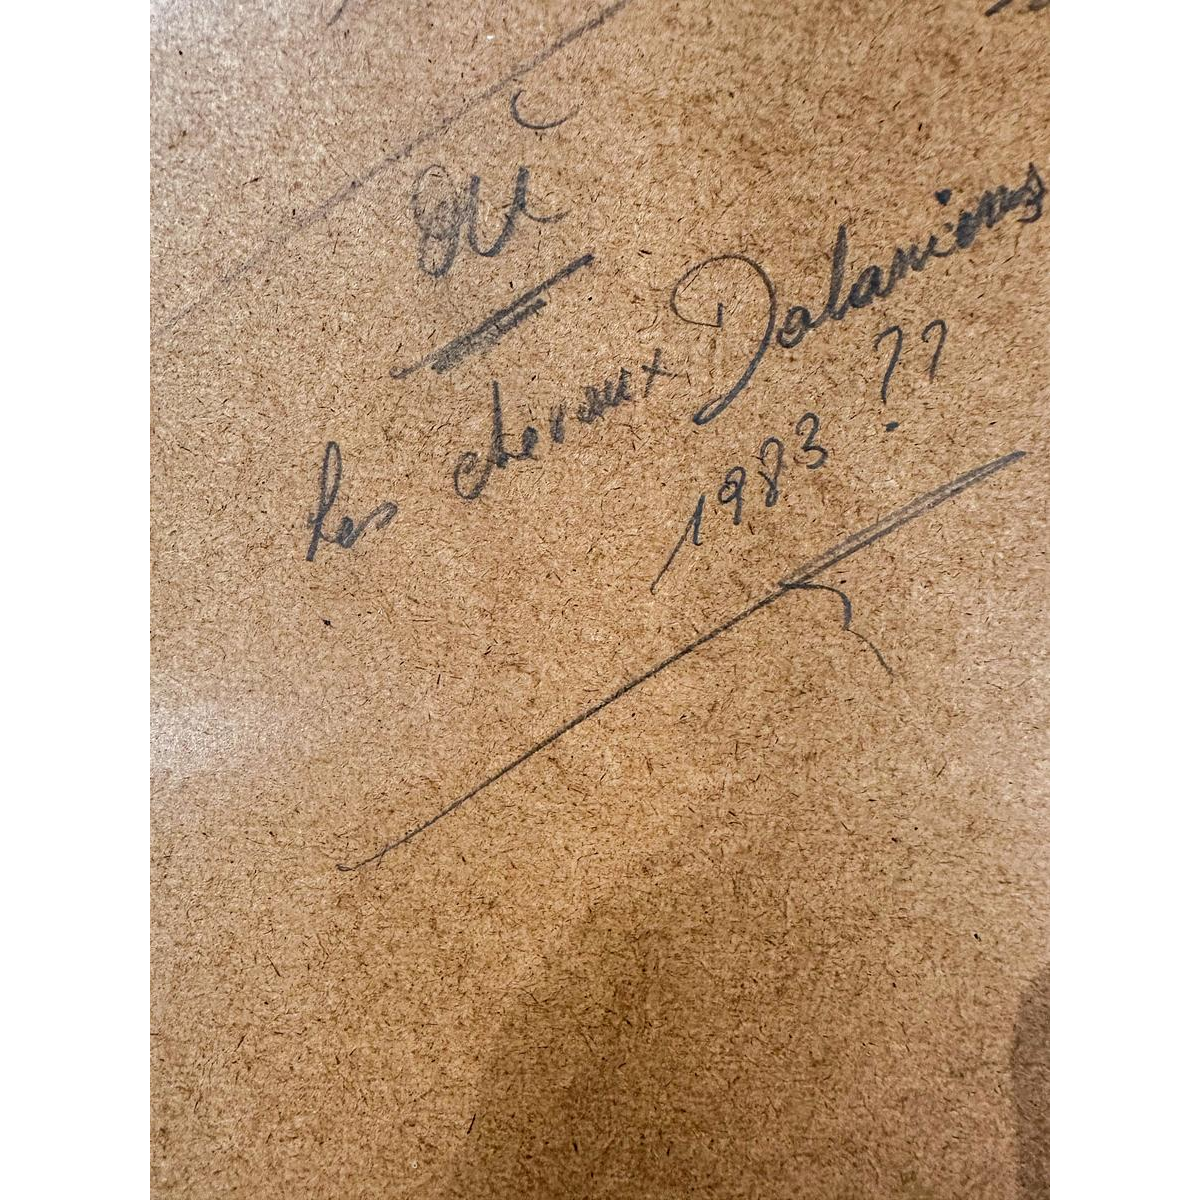 OU
Les chevaux Daliniens
1983 ??